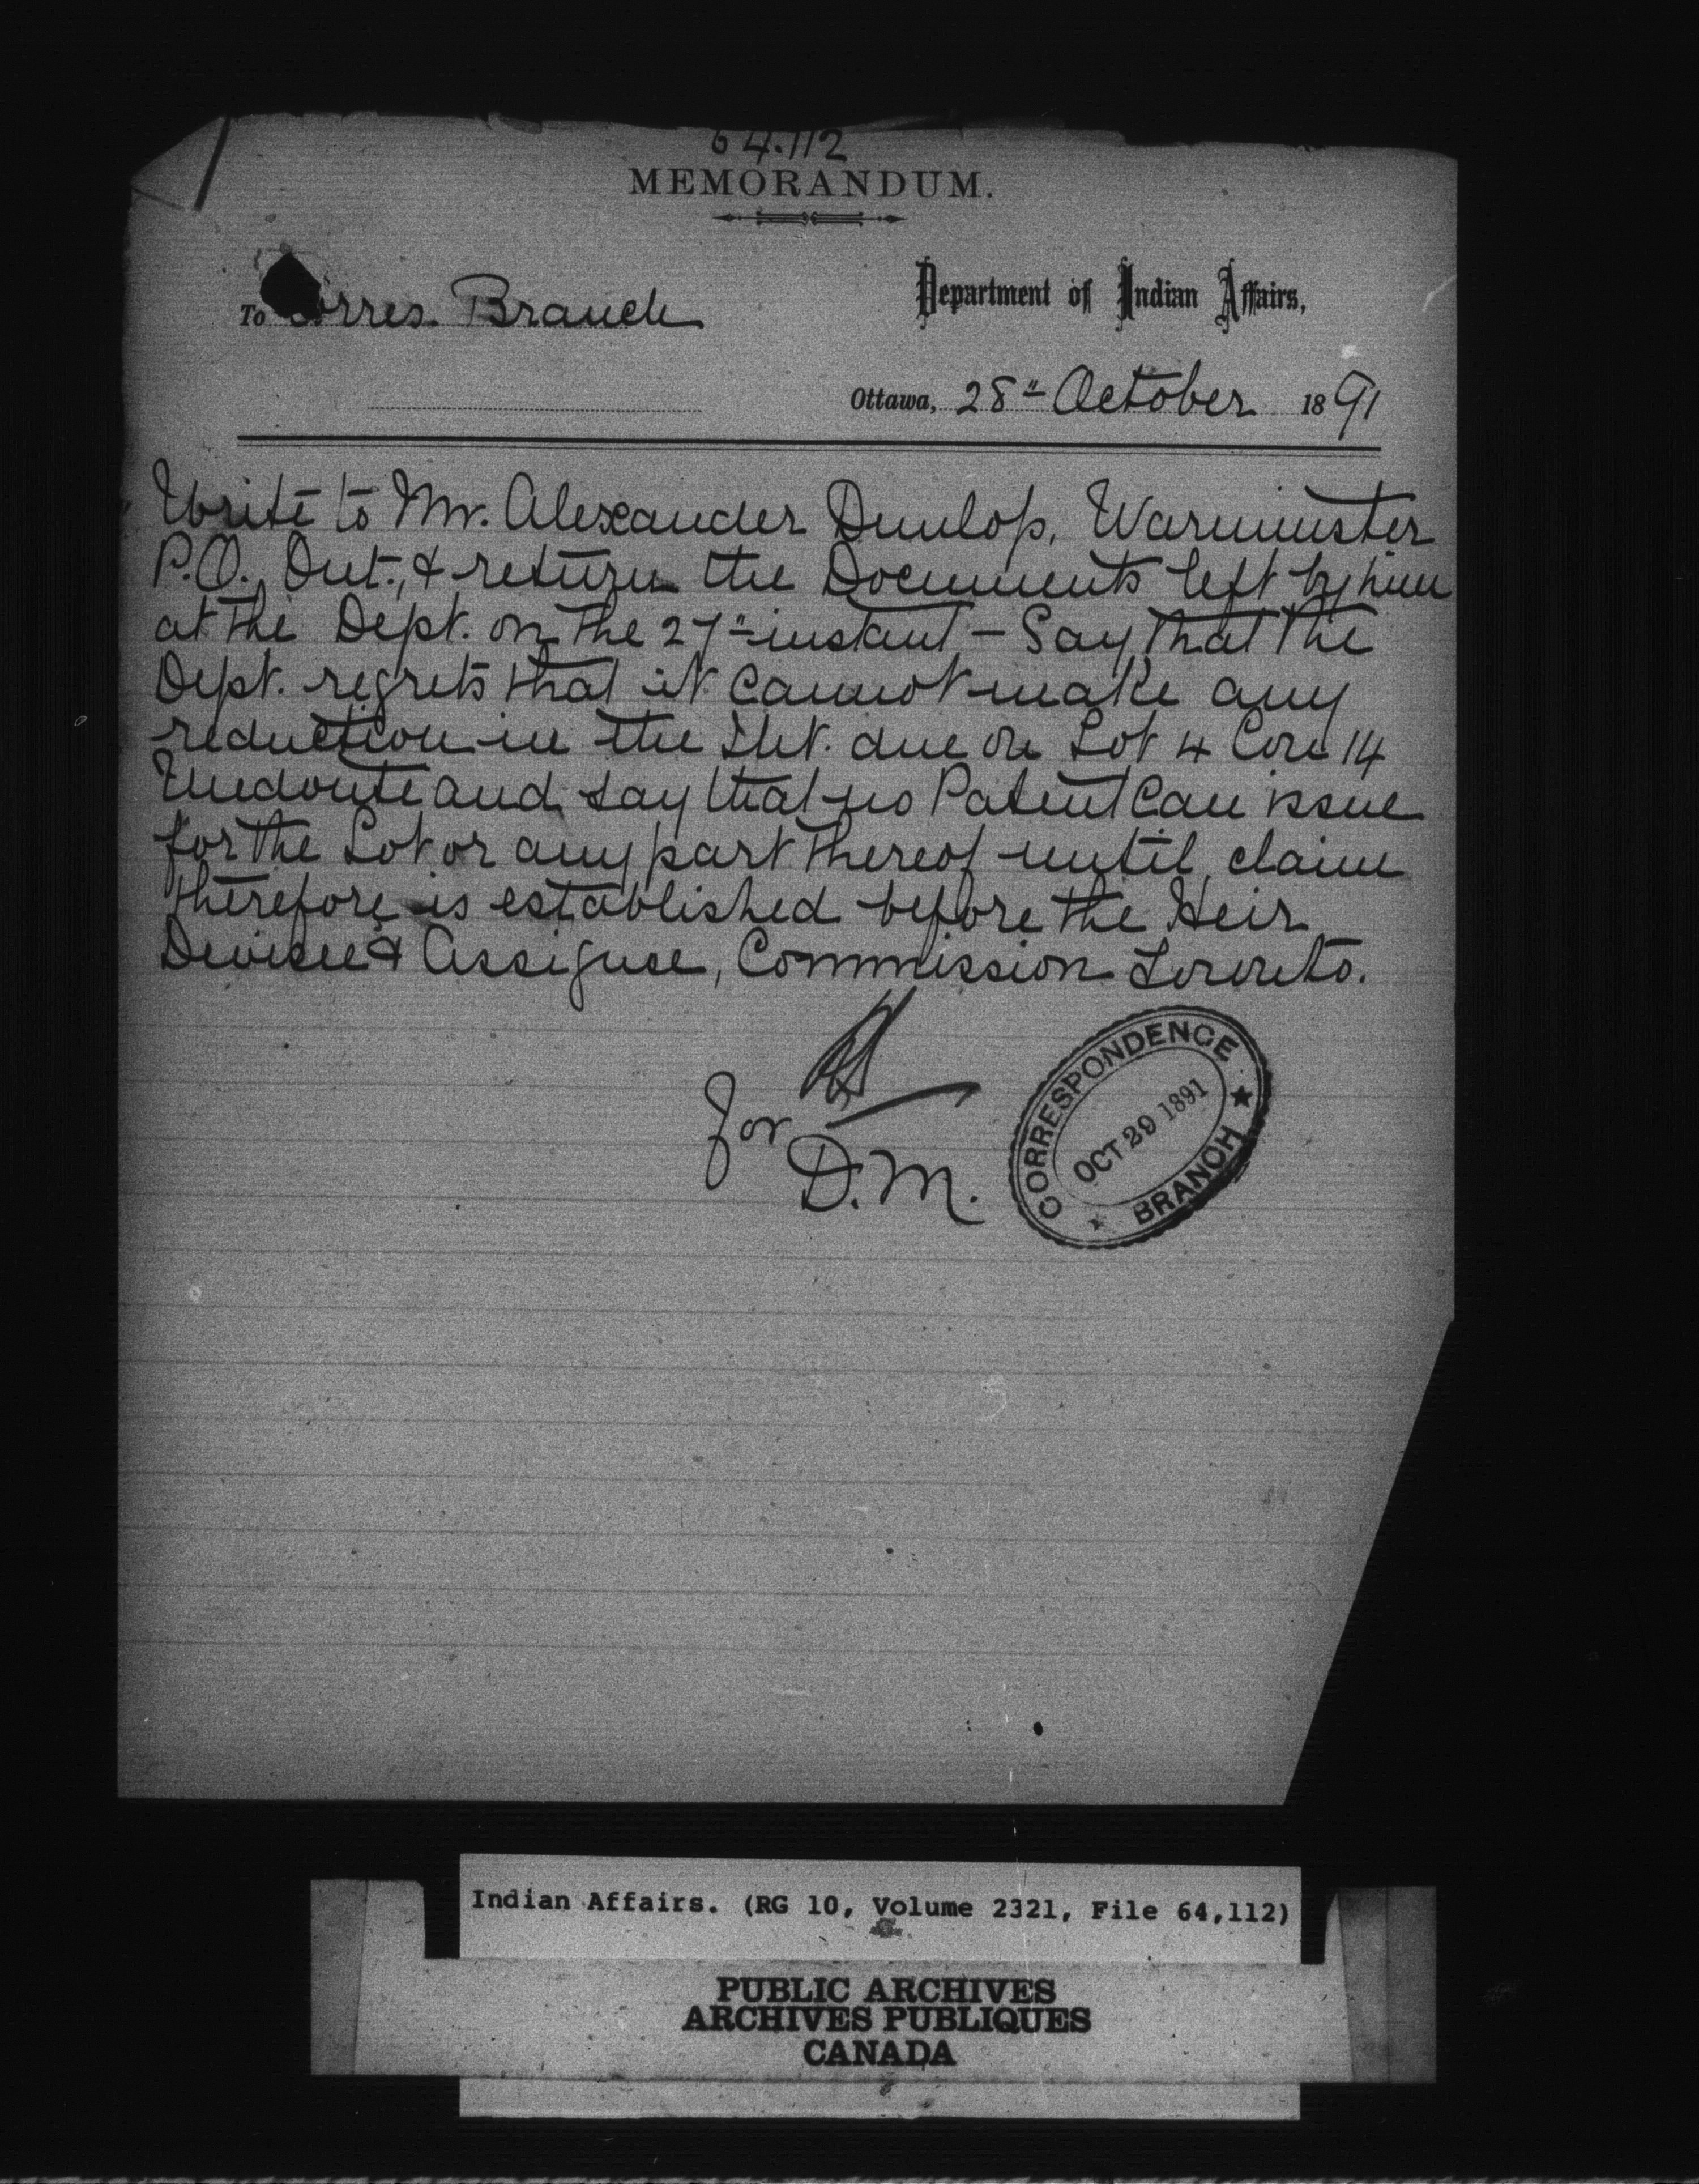 64.112
MEMORANDUM.
Department of Indian Affairs,
To Corres. Branch
Ottawa, 28" October 1891
Write to Mr. Alexander Dunlop, Warminster
P.O. Ont., & return the Documents left by him
at the Dept. on the 27" instant - Say that the
Dept. regrets that it cannot make any
reduction in the Int. due on Lot 4 Con 14
Medonte and say that no Patent Can issue
for the Lot or any part thereof until claim
therefore is established before the Heir
Devisee & Assignee, Commission Toronto.
for
D.M.
CORRESPONDENCE
OCT 29 1891
BRANCH
Indian Affairs. (RG 10, Volume 2321, File 64,112)
PUBLIC ARCHIVES
ARCHIVES PUBLIQUES
CANADA